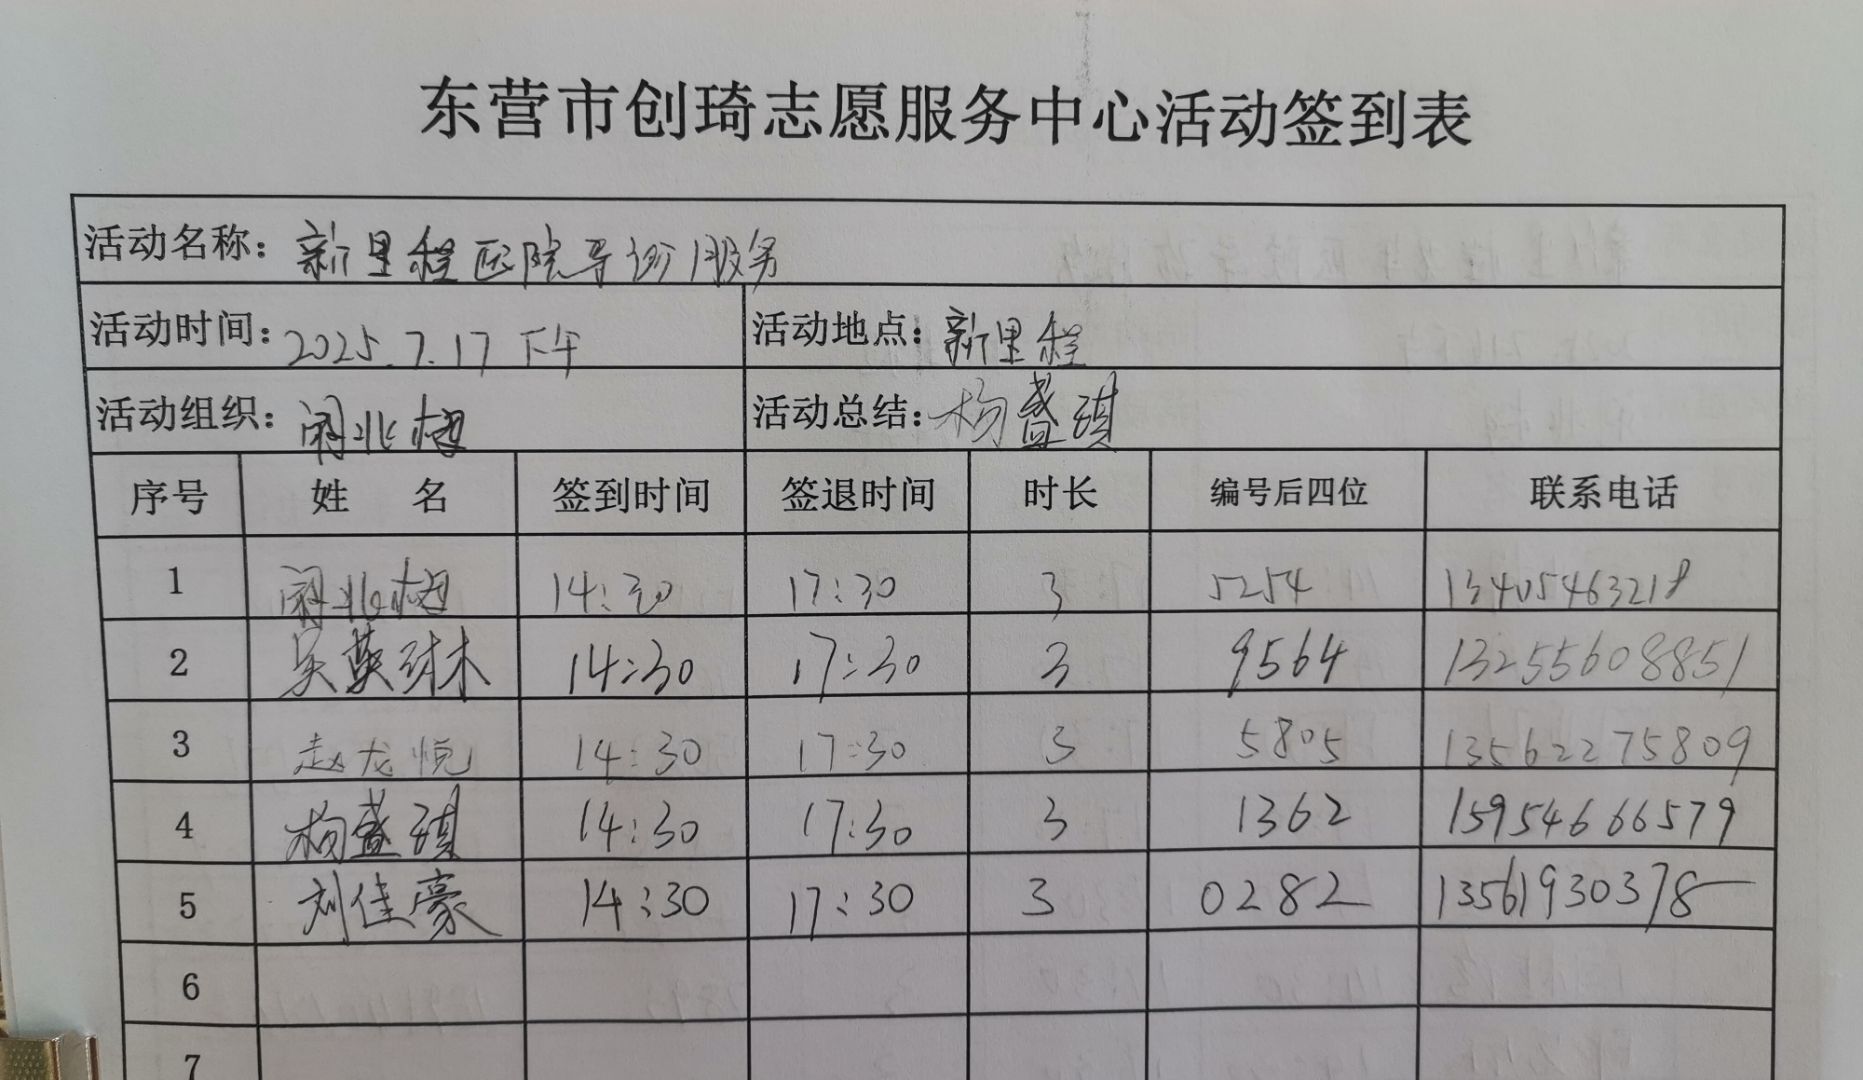 东营市创琦志愿服务中心活动签到表
活动名称：新里程医院导诊服务
活动时间：2025.7.17 下午 活动地点：新里程
活动组织： 活动总结：杨盛琪
序号 姓 名 签到时间 签退时间 时长 编号后四位 联系电话
1 14:30 17:30 3 5254 13405463218
2 吴英树木 14:30 17:30 3 9564 13255608851
3 赵龙悦 14:30 17:30 3 5805 13562275809
4 杨盛琪 14:30 17:30 3 1362 15954666579
5 刘佳豪 14:30 17:30 3 0282 13561930378
6
7